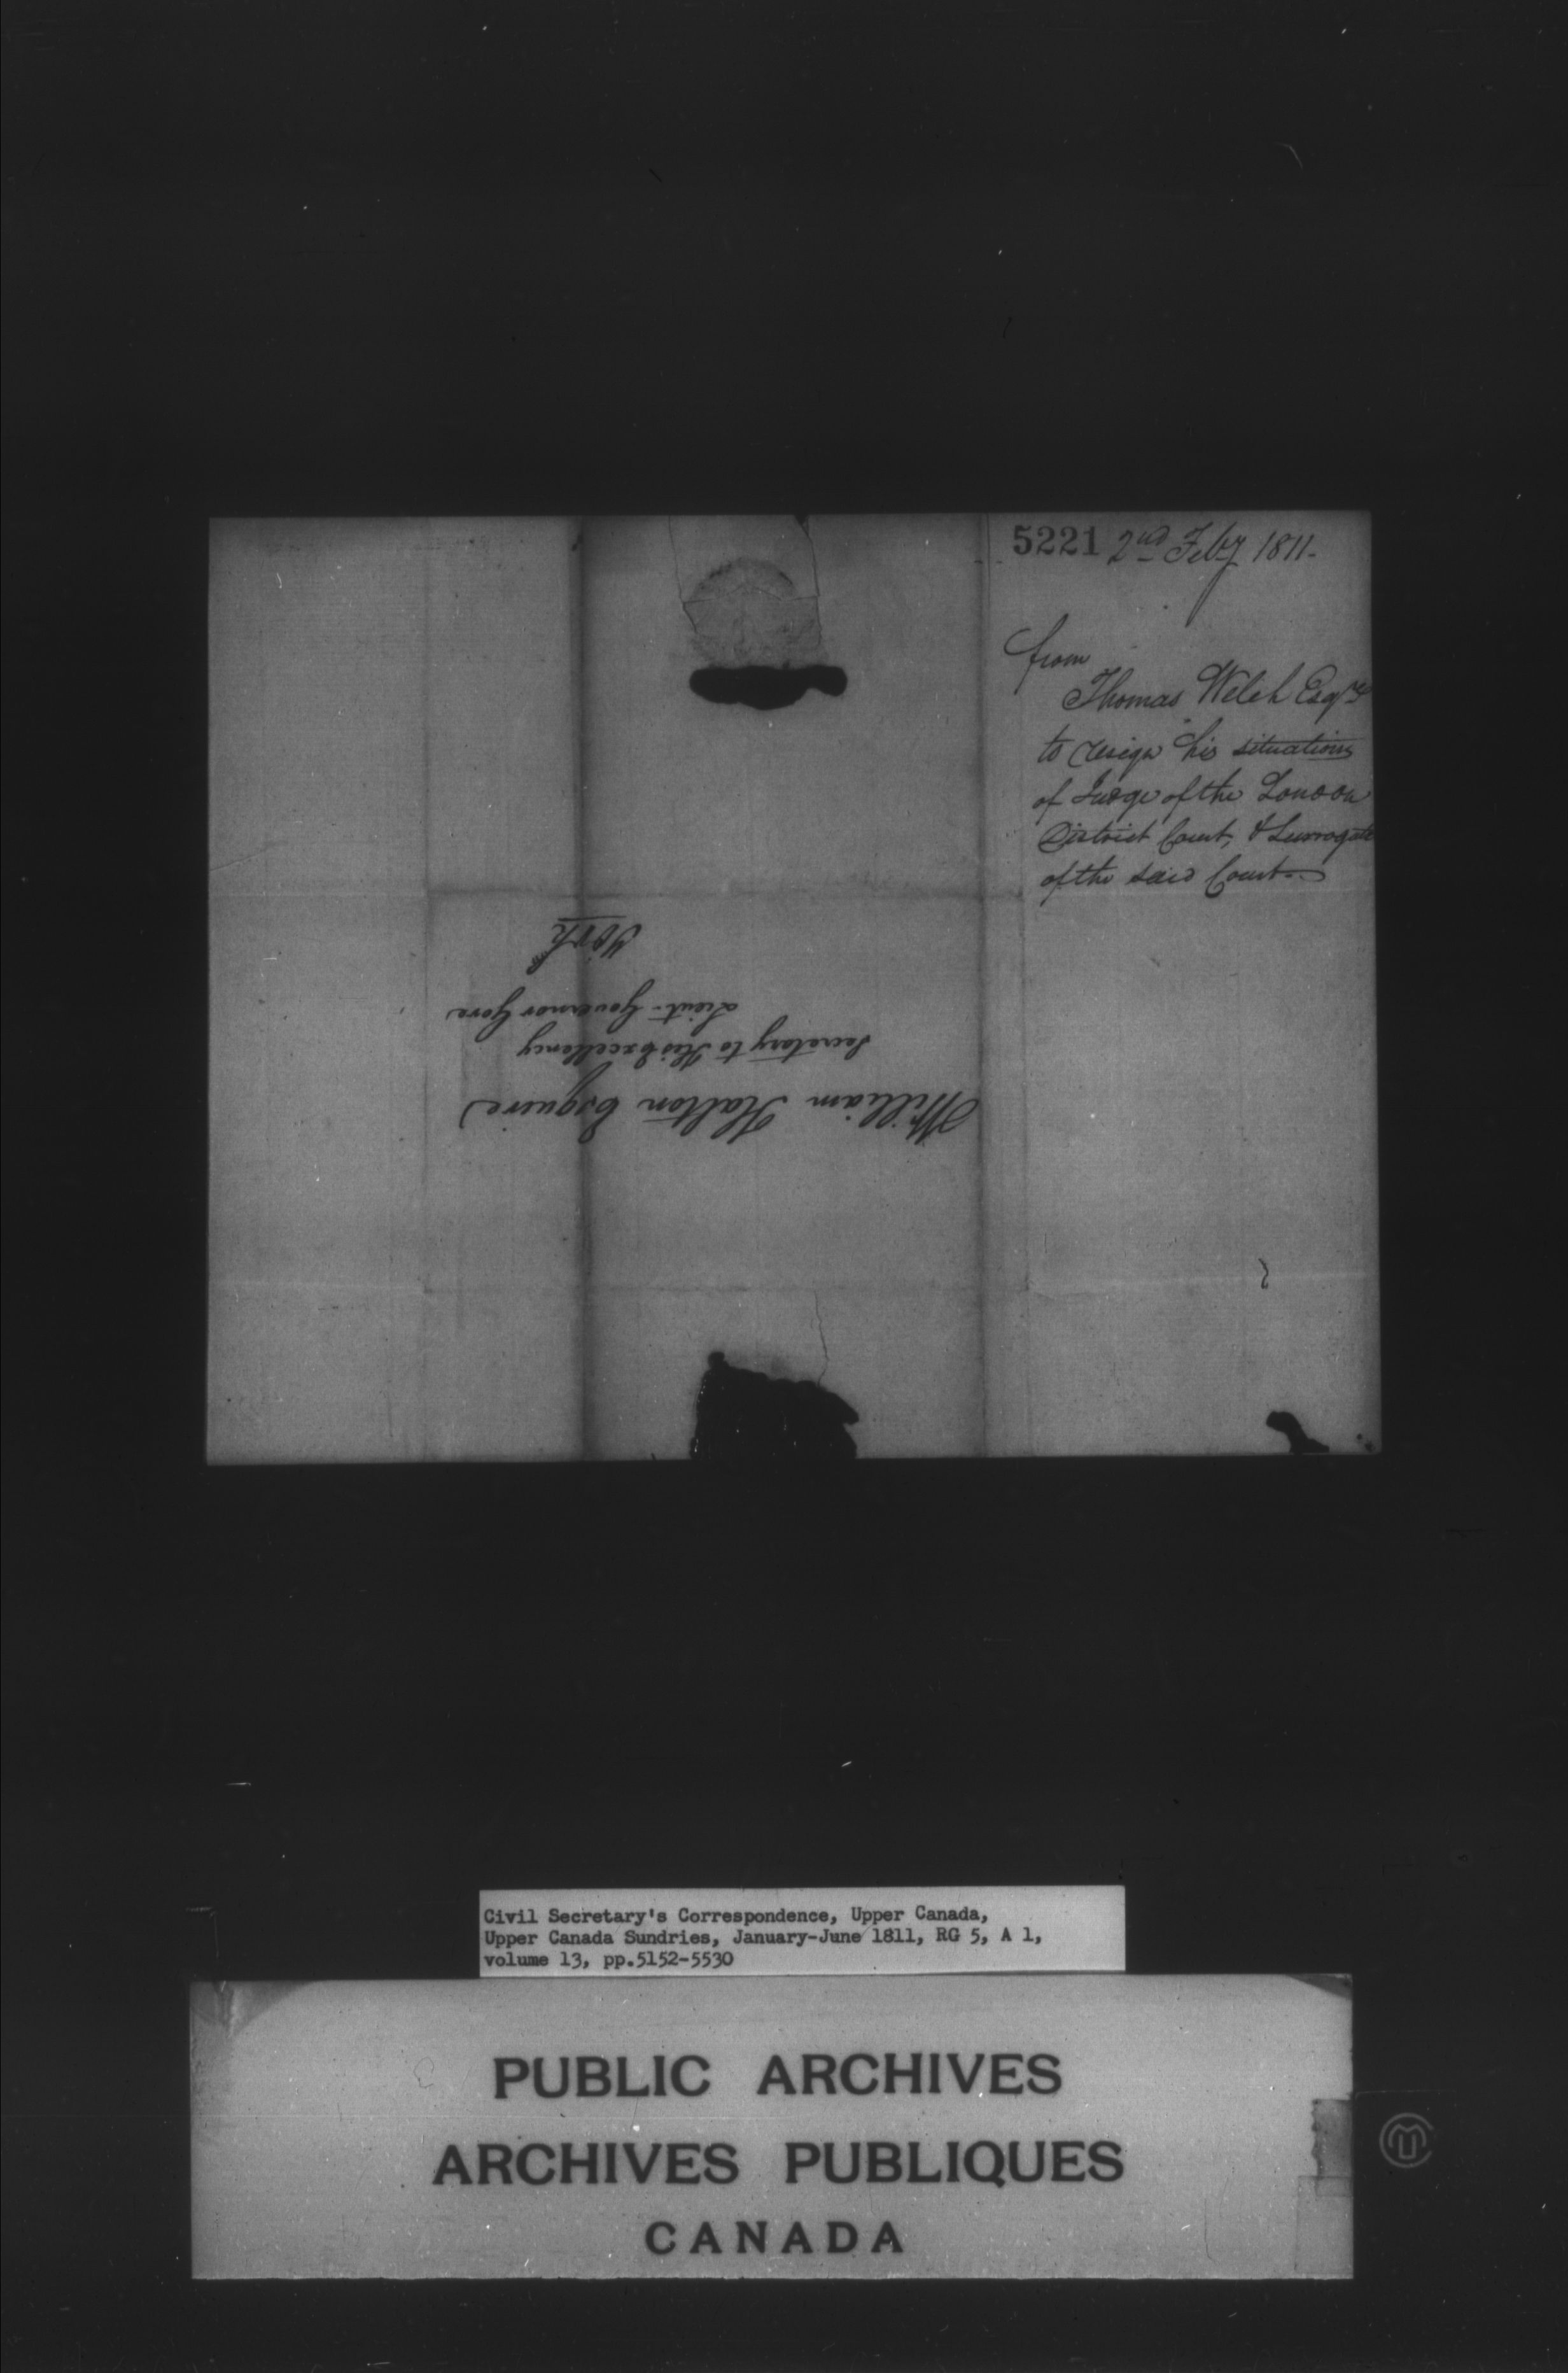 5221 2nd Feby 1811-
from
Thomas Welch Esqre
to resign his situations
of Judge of the London
District Court, & Surrogate
of the said Court-
William Halton Esquire
Secretary to His Excellency
Lieut- Governor Gore
York
Civil Secretary's Correspondence, Upper Canada,
Upper Canada Sundries, January-June 1811, RG 5, A 1,
volume 13, pp.5152-5530
PUBLIC ARCHIVES
ARCHIVES PUBLIQUES
CANADA